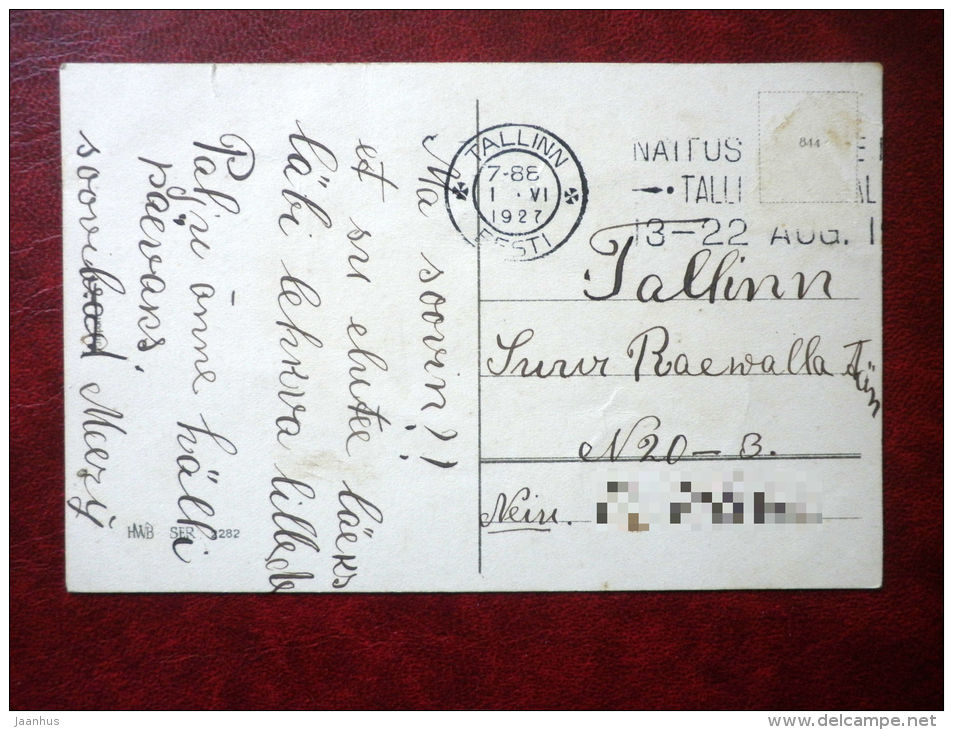 Ma soovin!!
et su elutee läeks
läbi lehkva lillede
Palju õnne hälli
päevaks.
soovib Meezy
HWB SER 2282
TALLINN
7-88
1 · VI
1927
EESTI
NÄITUS
TALLI
13-22 AUG. 1
844
Tallinn
Suur Raewalla
N20-3.
Neiu.
jaanhus
www.delcampe.net